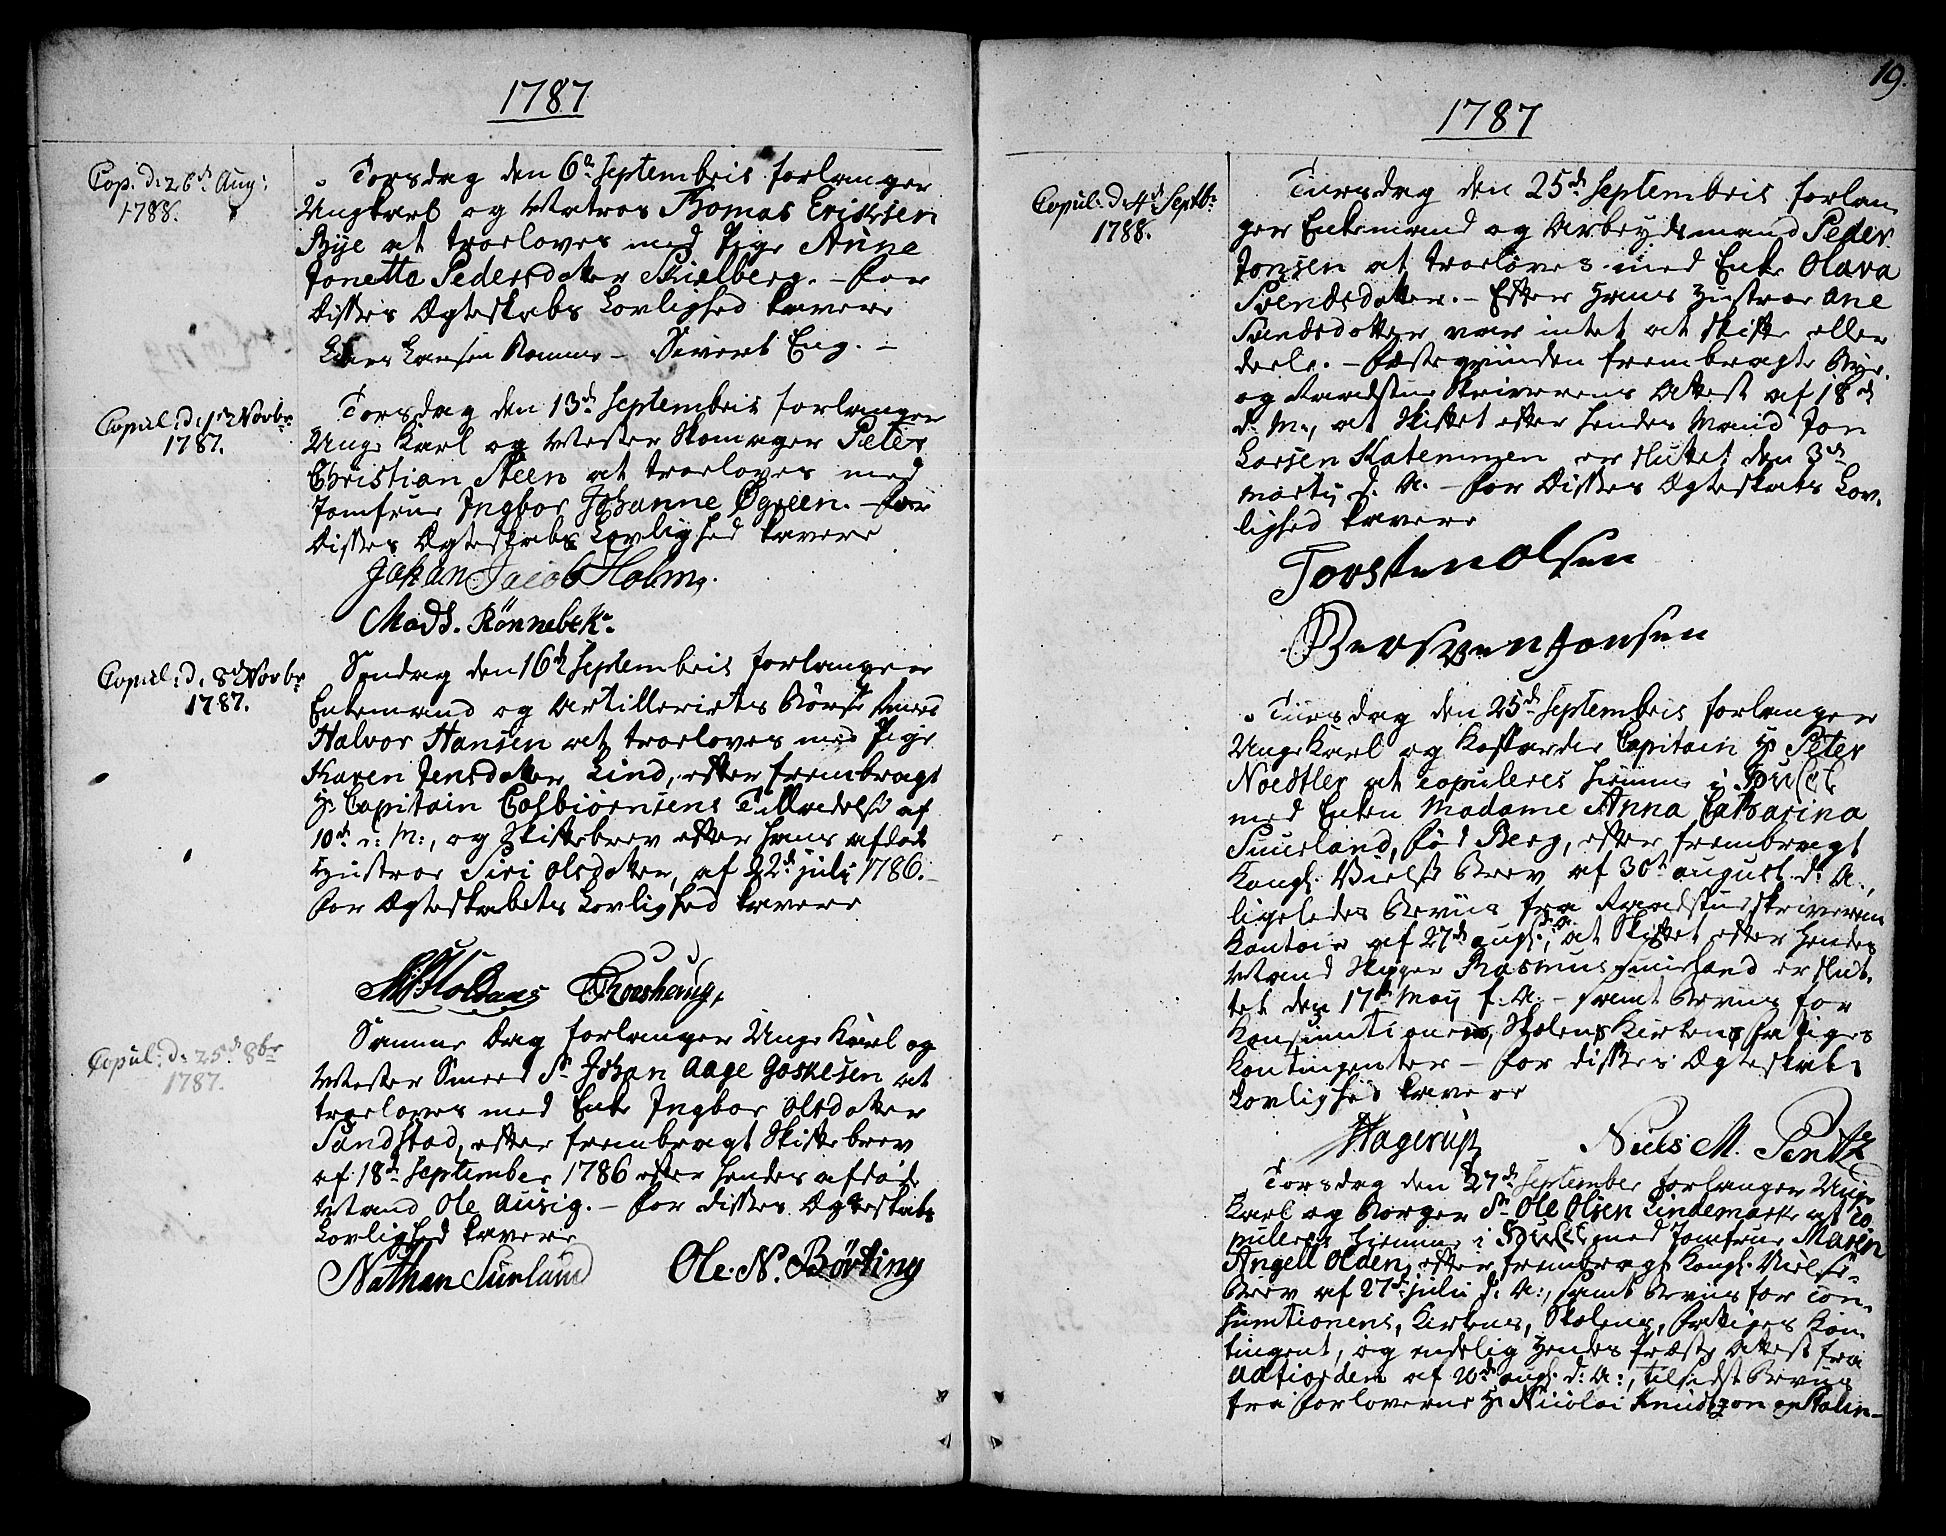 1787
Cop. d: 26de Aug:
1788.
Torsdag den 6te Septembris forlanger
Ungkarl og Matros Thomas Erichsen
Bye at troeloves med Pige Anne
Jonetta Pedersdatter Skielberg. – For
Disses Ægteskabs Lovlighed kavere
Lars Larsen Romme – Sivert Eng. –
Copul: d: 1te Novbr:
1787.
Torsdag den 13de Septembris forlanger
Unge Karl og Mester Skomager Peter
Christian Steen at troeloves med
Jomfrue Ingbor Johanne Øgreen. – For
Disses Ægteskabs Lovlighed kavere
Johan Jacob Holm.
Mads. Rönnebek.
Copul: d: 8de Novbr
1787.
Søndag den 16de Septembris forlanger
Enkemand og Artilleriets Bøsse
Halvor Hansen at troeloves med Pige
Karen Jensdatter Lind, efter frembragt
Hr Capitain Colbiörnsens Tilladelse af
10de d: M:, og Skiftebrev efter hans afdøde
Hustroe Siri Olsdatter, af 22de julii 1786. –
For Ægteskabets Lovlighed kavere
Copul: d: 25de 8br
1787.
Samme Dag forlanger Unge Karl og
Mester Smeed Sr Johan Aage Gaskesen at
troeloves med Enke Ingbor Olsdatter
Sundstad, efter frembragt Skiftebrev
af 18de September 1786 efter hendes afdøde
Mand Ole Ausig. – For disses Ægteskabs
Lovlighed kavere
Nathan Surland Ole. N. Börting
19.
1787
Copul: d: 4de Septbr
1788.
Tiirsdag den 25de Septembris forlan-
ger Enkemand og Arbeydsmand Peder
Jonsen at troeloves med Enke Olava
Svendsdatter. – Efter Hans Hustroe Ane
Svendsdatter var intet at skifte eller
deele. – Fæsteqvinden frembragte Bye-
og Raadstue Skriverens Attest af 18de
d: M:, at Skiftet efter hendes Mand Jon
Larsen Katemmen er sluttet den 3de
Martij d: A: – For Disses Ægteskabs Lov-
lighed kavere
Torsten Olsen
Bersven Jonsen
Tiirsdag den 25de Septembris forlanger
Unge Karl og Koffardie Capitain Hr Peter
Noedtler at copuleres hiemme i Huset
med Enken Madame Anna Catharina
Suurland, fød Berg, efter frembragt
Kongl: Vielse Brev af 30te august d: A:,
ligeledes Beviis fra Raadstueskriverens
Kontoir af 27de augl: d: A:, at Skiftet efter hendes
Mand Skipper Rasmus Suurland er slut-
tet den 17de Maij f: A: – samt Beviis for
Konsumtionens, Skolens, Kirkens, Fattiges
Kontingenter – For disses Ægteskabs
Lovlighed kavere
Hagerup Niels M. Pentz
Torsdag den 27de September forlanger Unge
Karl og Borger Sr Ole Olsen Lindemark at co-
puleres hiemme i Huset med Jomfrue Maren
Angell Olden, efter frembragt Kongl: Vielse-
Brev af 27de julii d: A:, samt Beviis for Con-
sumtionens, Kirkens, Skolens, Fattiges Kon-
tingent, og endelig Hendes Præsts Attest fra
Udtiorden af 20de augl: d: A:, tilsidst Beviis
fra Forloverne Hr Nicolai Knudtzon og Stolin-